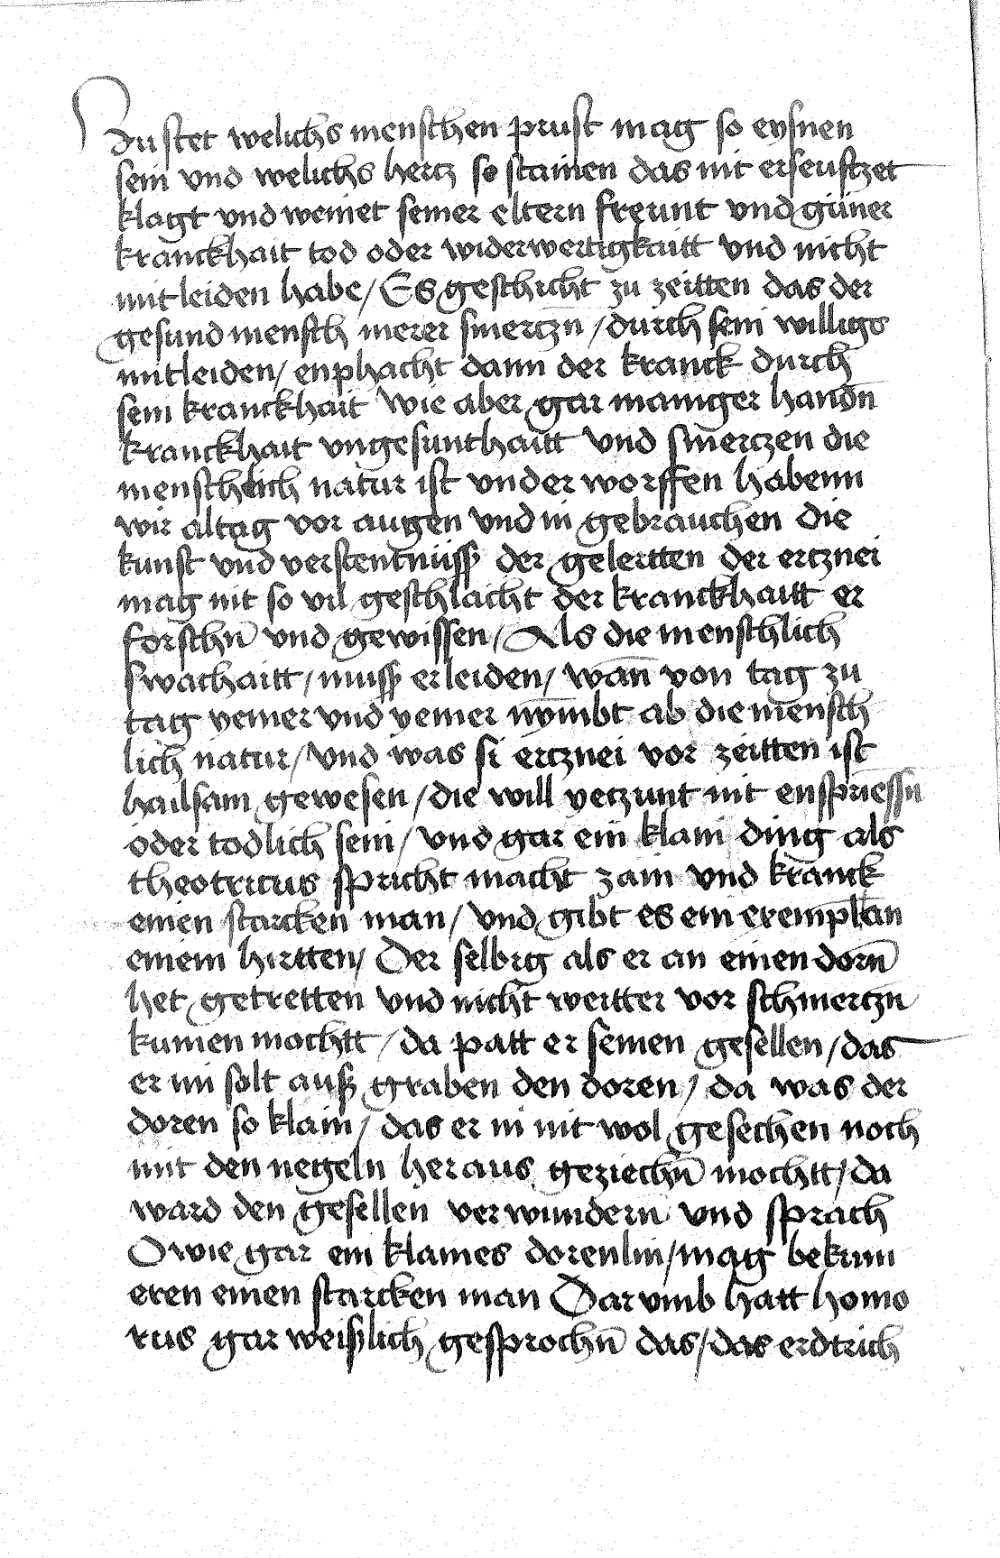 zu stet welichs menschen prust mag so eysnen
sein vnd welichs hertz so stainen das nit erseuftzet
klagt vnd weinet seiner eltern freunt vnd günner
kranckhait tod oder widerwertigkaitt vnd nicht
mitleiden habe / Es geschicht zu zeitten das der
gesund mensch merer smerczn̄ / durch sein willigs
mitleiden / enphacht dann der kranck durch
sein kranckhait Wie aber gar maniger handn̄
kranckhait vngesunthaitt vnd smerczen die
menschlich natur ist vnder worffen habenn
wir altag vor augen vnd in gebrauchen die
kunst vnd verstentnüsß der gelertten der ercznei
mag nit so vil geschlacht der kranckhaitt er
forschn̄ vnd gewissen / Als die menschlich
swachaitt / musß erleiden / wan̄ von tag zu
tag yemer vnd yemer nym̄bt ab die mensch
lich natur / Vnd was si ercznei vor zeitten ist
hailsam gewesen / die will yeczunt nit enspriessn
oder todlich sein / vnd gar ein klain ding als
theotricus spricht macht zam vnd kranck
einen starcken man / Vnd gibt es ein exempl an
einem hirtten / Der selbig als er an einen dorn̄
het getretten vnd nicht weitter vor schmerczn
kumen mochtt / da patt er seinen gesellen / das
er im solt ausß graben den doren / da was der
doren so klain / das er in nit wol gesechen noch
mit den negeln heraus geziechn̄ mochtt / da
ward den gesellen verwundern vnd sprach
O wie gar ein klaines dorenlin / mag bekum
eren einen starcken man Darvmb hatt homo
rus gar weißlich gesprochn̄ das / das erdtrich